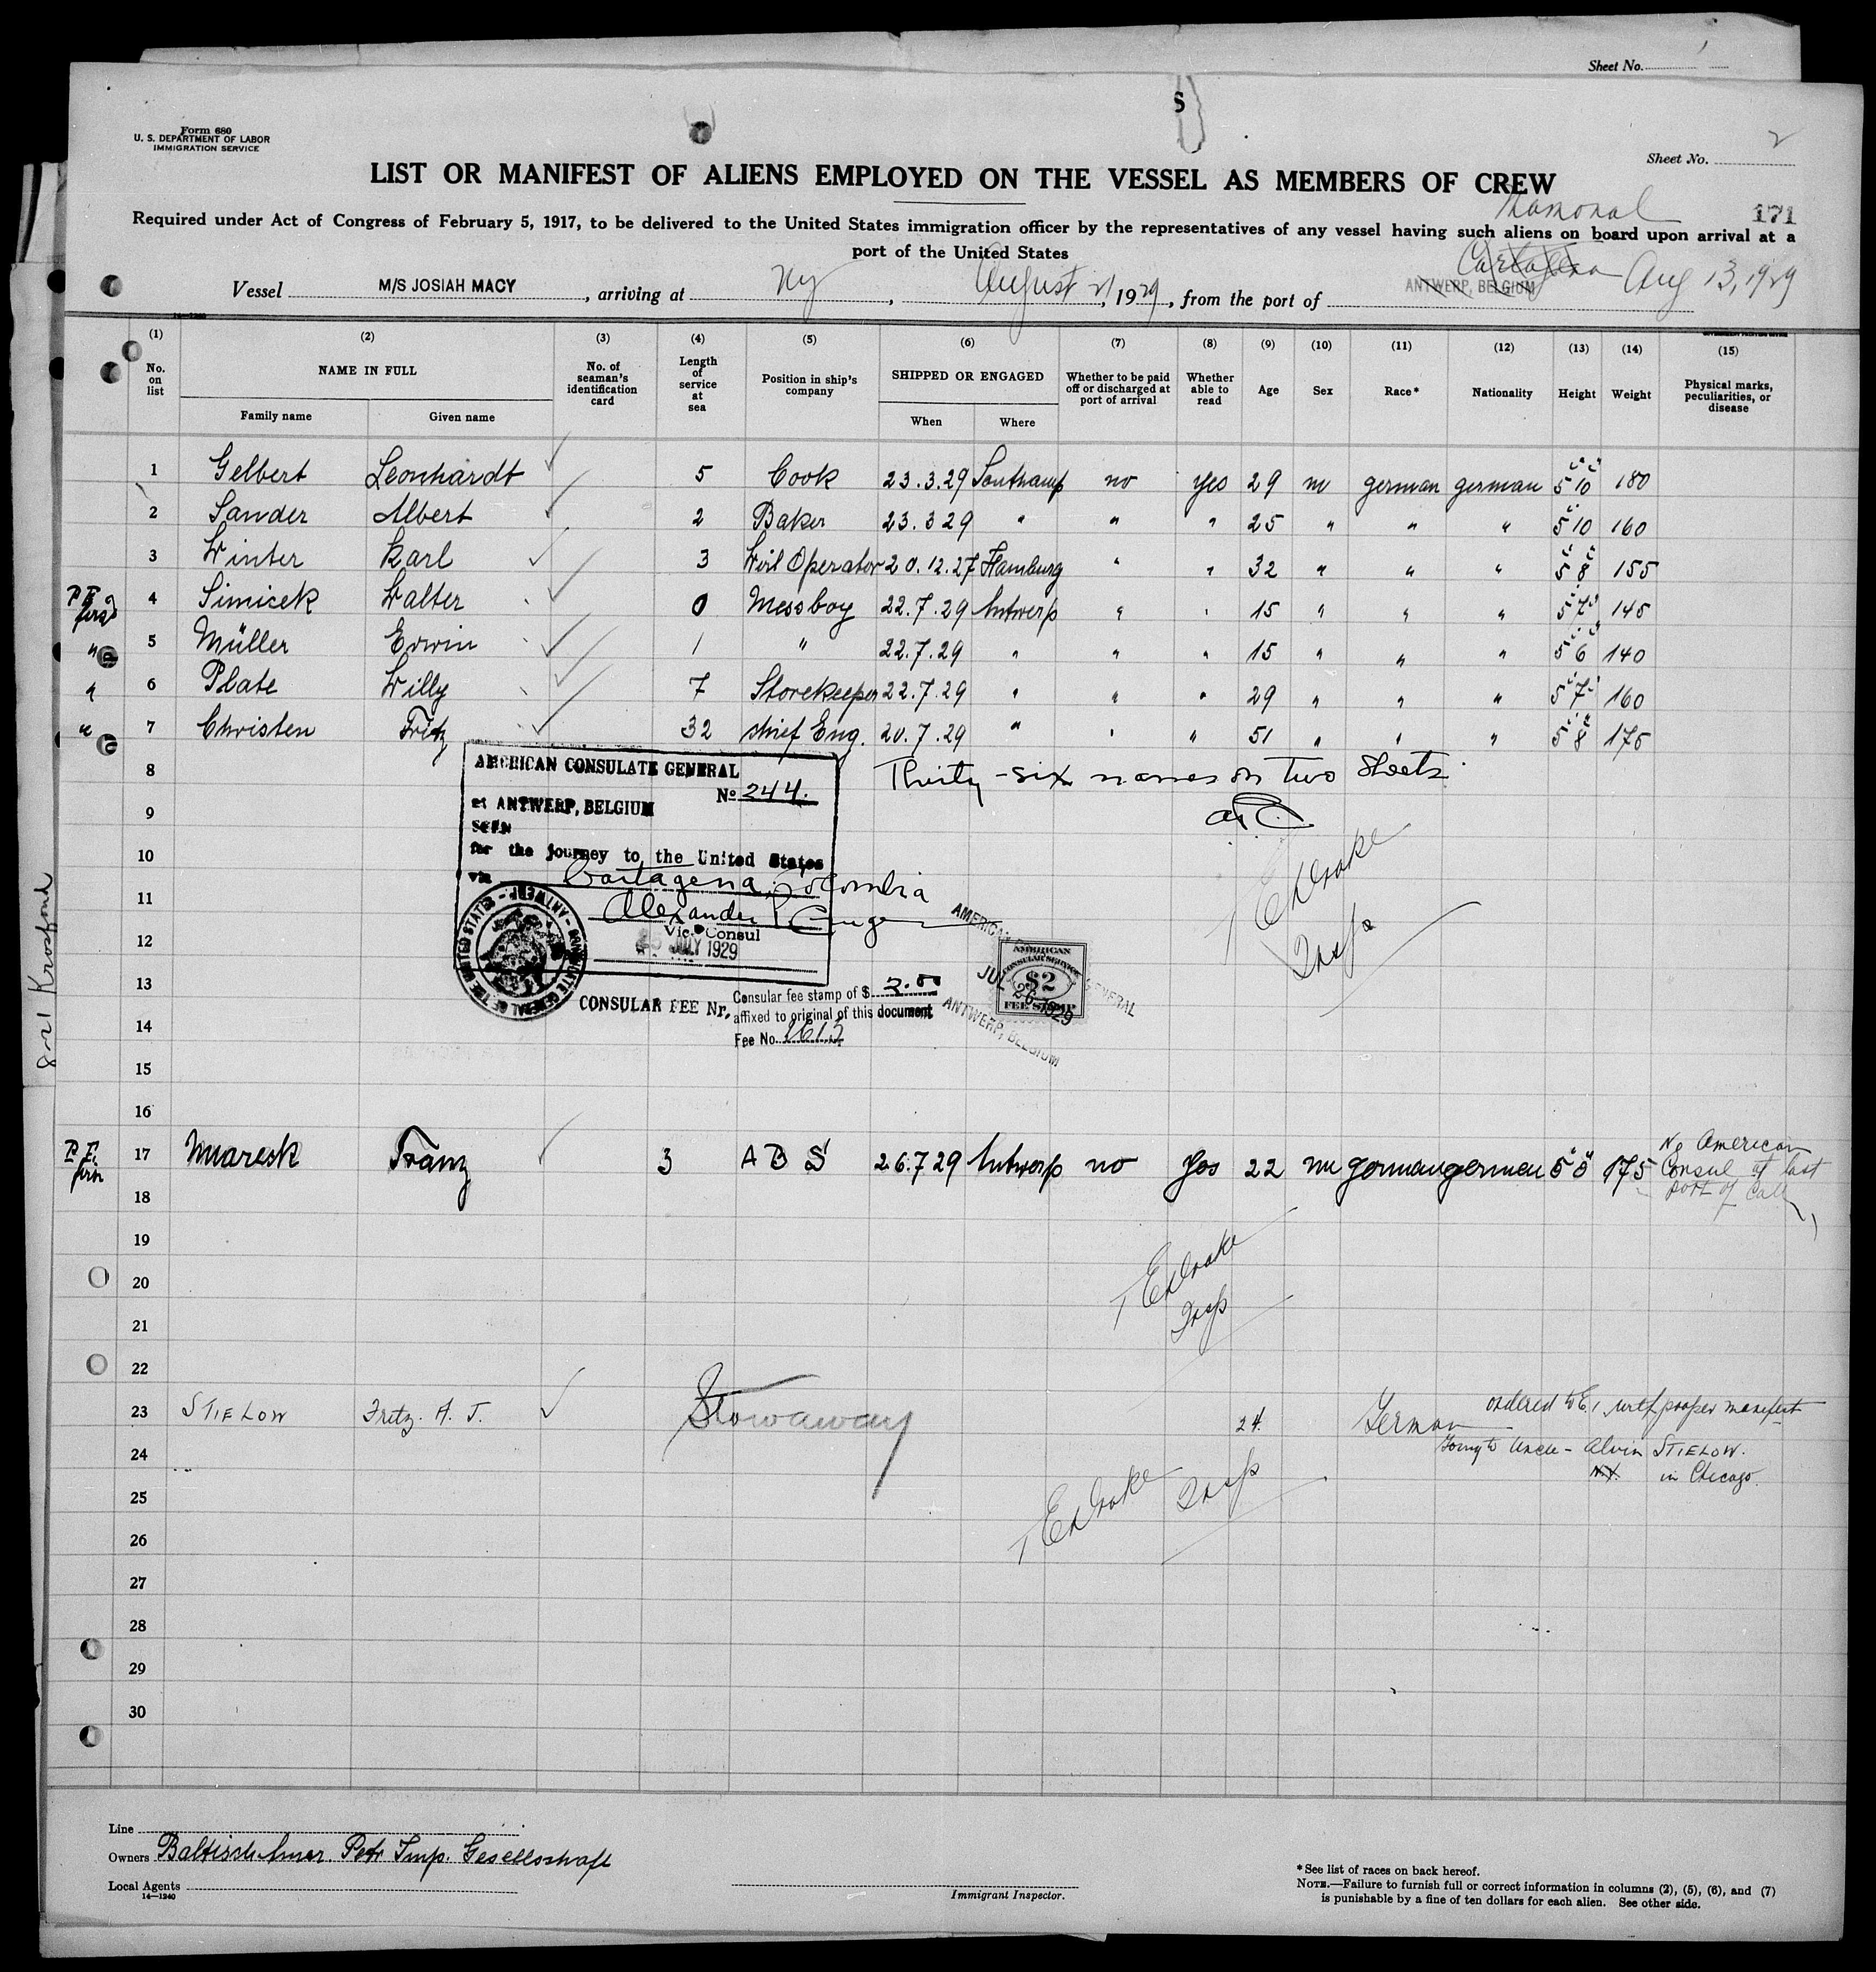 Sheet No.
S
Form 680
U. S. DEPARTMENT OF LABOR
IMMIGRATION SERVICE
2
Sheet No.
LIST OR MANIFEST OF ALIENS EMPLOYED ON THE VESSEL AS MEMBERS OF CREW
171
Required under Act of Congress of February 5, 1917, to be delivered to the United States immigration officer by the representatives of any vessel having such aliens on board upon arrival at a
port of the United States
Mamonal
Cartagena
Vessel M/S JOSIAH MACY, arriving at Ny, August 21, 1929, from the port of ANTWERP, BELGIUM Aug 13, 1929
14—1240
GOVERNMENT PRINTING OFFICE
(1) (2) (3) (4) (5) (6) (7) (8) (9) (10) (11) (12) (13) (14) (15)
No. on list
NAME IN FULL
Family name
Given name
No. of seaman's identification card
Length of service at sea
Position in ship's company
SHIPPED OR ENGAGED
When
Where
Whether to be paid off or discharged at port of arrival
Whether able to read
Age
Sex
Race*
Nationality
Height
Weight
Physical marks, peculiarities, or disease
1 Gelbert Leonhardt 5 Cook 23.3.29 Southamp no yes 29 m german german 5 10 180
2 Sander Albert 2 Baker 23.3 29 " " " 25 " " " 5 10 160
3 Winter Karl 3 Wirl Operator 20.12.27 Hamburg " " 32 " " " 5 8 155
4 Simicek Walter 0 Messboy 22.7.29 Antwerp " " 15 " " " 5 7 145
" 5 Müller Erwin 1 " 22.7.29 " " " 15 " " " 5 6 140
" 6 Plate Willy 7 Storekeeper 22.7.29 " " " 29 " " " 5 7 160
" 7 Christen Fritz 32 chief Eng. 20.7.29 " " " 51 " " " 5 8 175
8
Thirty-six names on two sheets
AMERICAN CONSULATE GENERAL
No 244.
at ANTWERP, BELGIUM
SEEN
for the journey to the United States
via Cartagena, Colombia
Alexander P. Cruger
Vice Consul
JULY 1929
CONSULATE GENERAL OF THE UNITED STATES - ANTWERP -
CONSULAR FEE Nr.
Consular fee stamp of $ 2.00
affixed to original of this document
Fee No. 1612
AMERICAN CONSULAR SERVICE
$2
FEE STAMP
AMERICAN GENERAL
JUL 26 1929
ANTWERP, BELGIUM
E Drake
Insp
9
10
11
12
13
14
15
16
P. E. 17 Franz 3 A B S 26.7 29 Antwerp no yes 22 m german german 5 8 175
No American
Consul at last
port of Call
18
19
20
21
22
E Drake
Insp
23 STIELOW Fritz. A. J. Stowaway 24. German
24
Going to Uncle - Alvin STIELOW.
NY. in Chicago.
E Drake Insp
25
26
27
28
29
30
Line
Owners Baltisch Amer. Petr Imp. Gesellschaft
Local Agents
14—1240
Immigrant Inspector.
*See list of races on back hereof.
NOTE.—Failure to furnish full or correct information in columns (2), (5), (6), and (7)
is punishable by a fine of ten dollars for each alien. See other side.